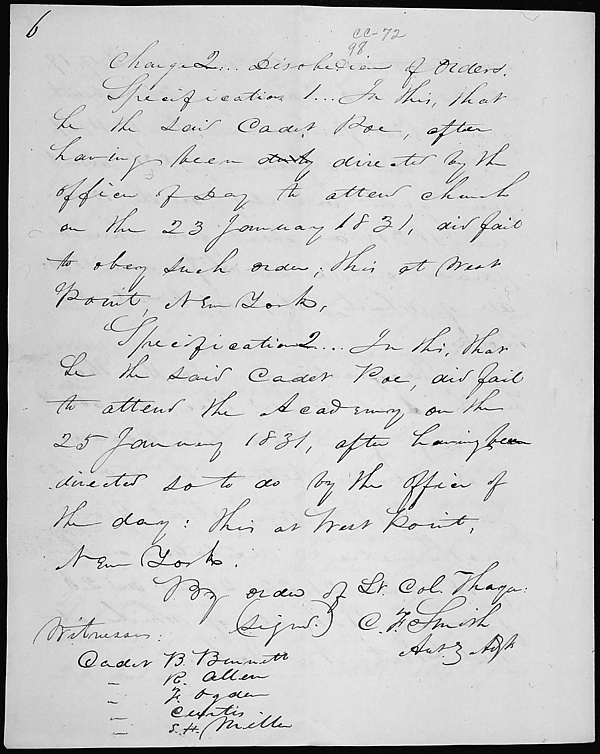 6
CC-72
98
Charge 2... Disobedience of Orders.
Specification 1... In this, that
he the said Cadet Poe, after
having been duly directed by the
officer of Day to attend church
on the 23 January 1831, did fail
to obey such order; this at West
Point, New York.
Specification 2... In this, that
he the said Cadet Poe, did fail
to attend the Academy on the
25 January 1831, after having been
directed so to do by the officer of
the day: this at West Point,
New York.
By order of Lt. Col. Thayer:
(signd.) C. F. Smith
Witnesses: Adjt
Cadet B. Bennett
– R. Allen
– F. Ogden
– Curtis
– S. H. Miller